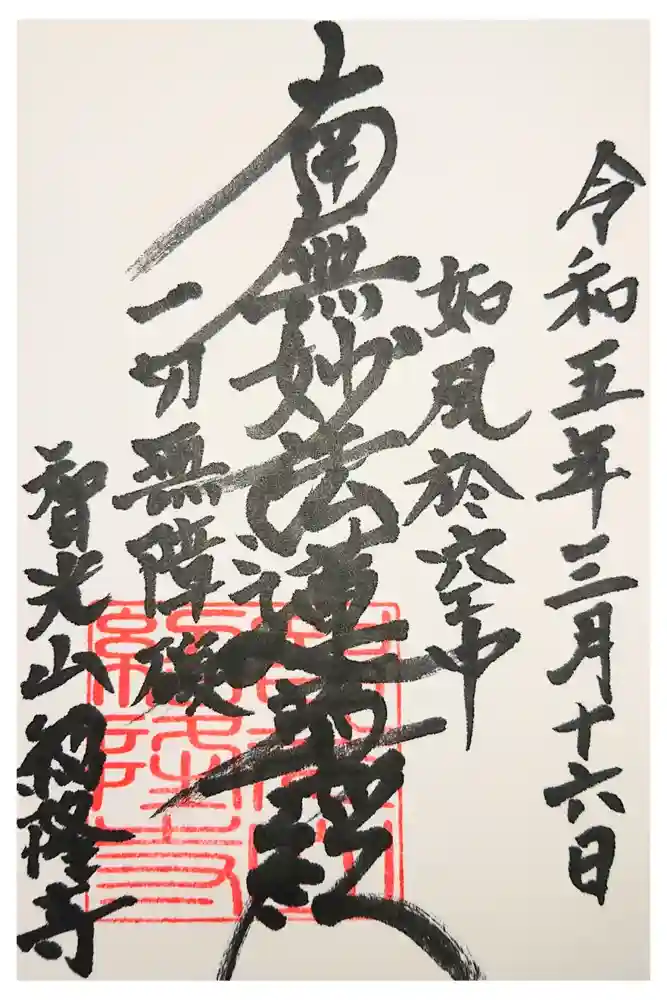 令和五年三月十六日
如風於空中
南無妙法蓮華経
一切無障礙
智光山 隆寺